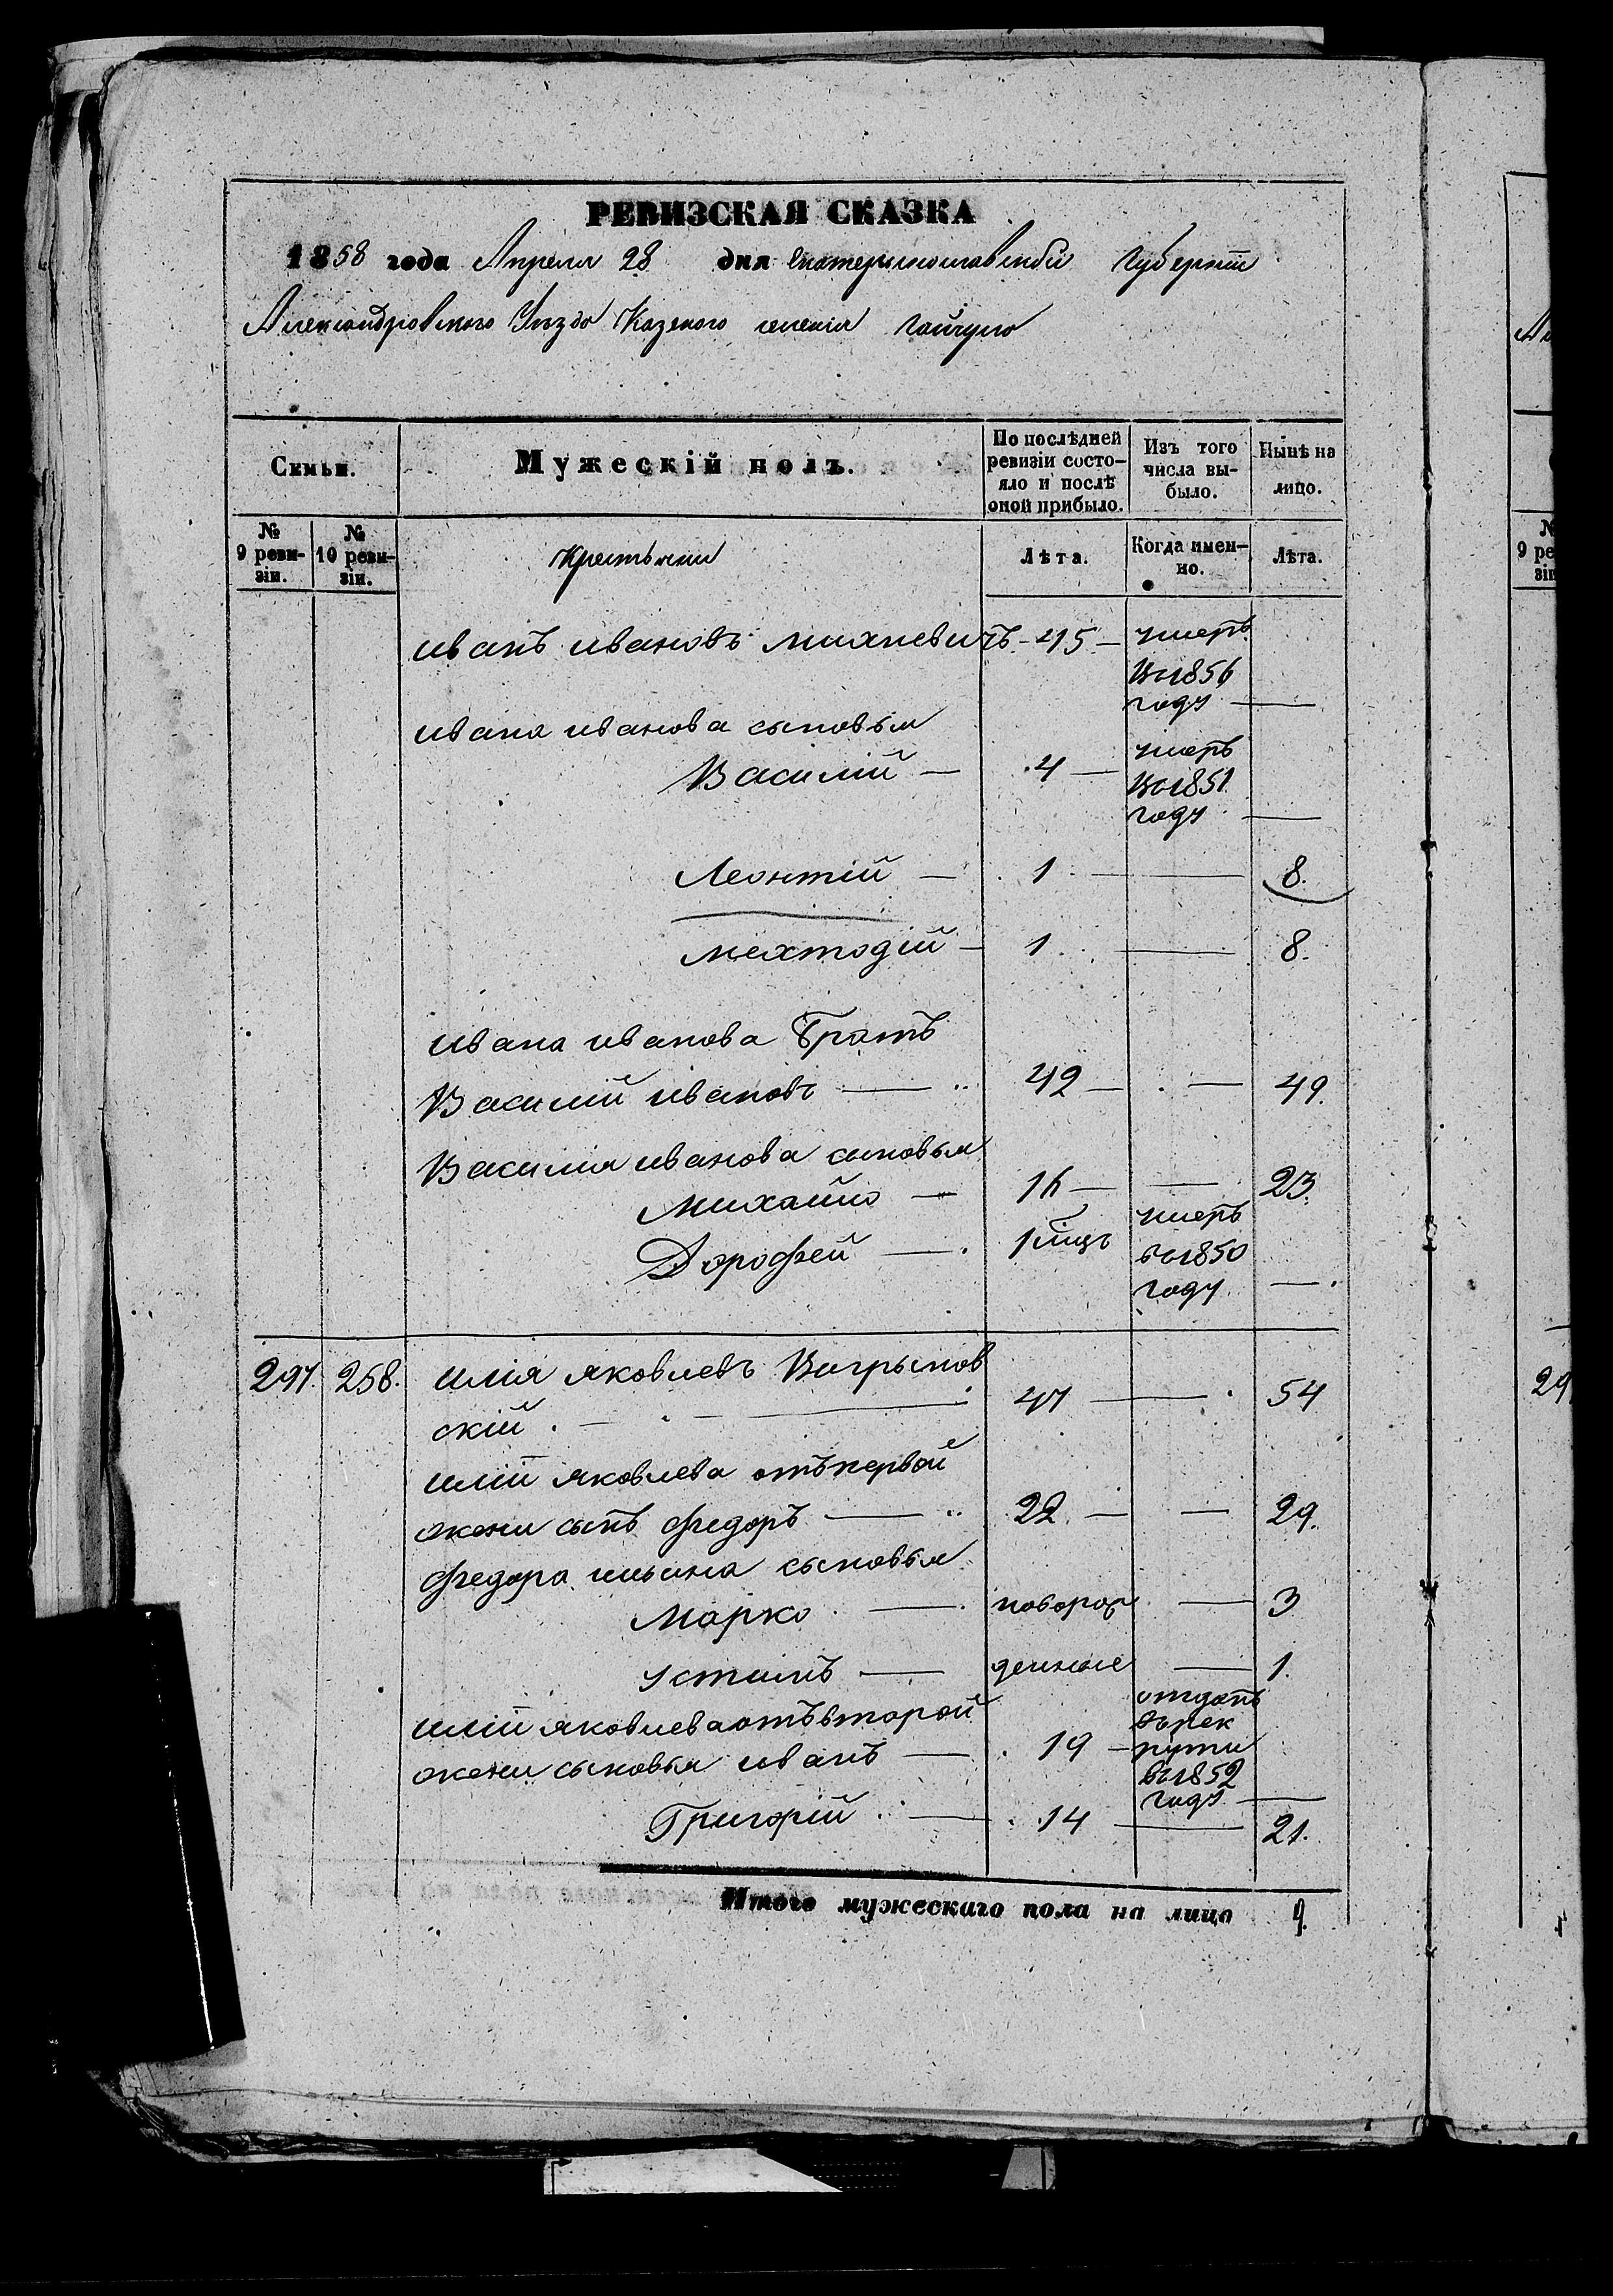 РЕВИЗСКАЯ СКАЗКА
1858 года Апреля 28 дня Екатеринославской Губерніи
Александровского Уезда Казеного селенія Гайчула
Семьи.
Мужескій полъ.
По послѣдней ревизіи состо-
яло и послѣ оной прибыло.
Изъ того числа вы-
было.
Нынѣ на лицо.
№ 9 реви-
зіи.
№ 10 реви-
зіи.
Крестьяни
Лѣта.
Когда имен-
но.
Лѣта.
иванъ ивановъ михневичъ - 45 - умеръ
въ 1856
году —
ивана иванова сыновья
Василій — 4 — умеръ
въ 1851
году —
Леонтій — 1 — 8.
мехтодій — 1. — 8.
ивана иванова Братъ
Василій ивановъ — 42 — — 49.
Василия иванова сыновья
михайло — 16 — — 23.
Дорофей — 1 мцъ умеръ
въ 1850
году —
297. 258. илія яковлевъ Вигрынов
скій. — 47 — 54
иліи яковлева отъ первой
жени сынъ федоръ — 22 — — 29.
федора ильина сыновья
Марко — новорож — 3
устимъ — денные — 1.
иліи яковлева отъ второй
жени сыновья иванъ — 19 — отданъ
въ рек
руты
въ 1852
году —
Григорій — 14 — 21.
Итого мужескаго пола на лицо 9.
29
9 ре
зіи